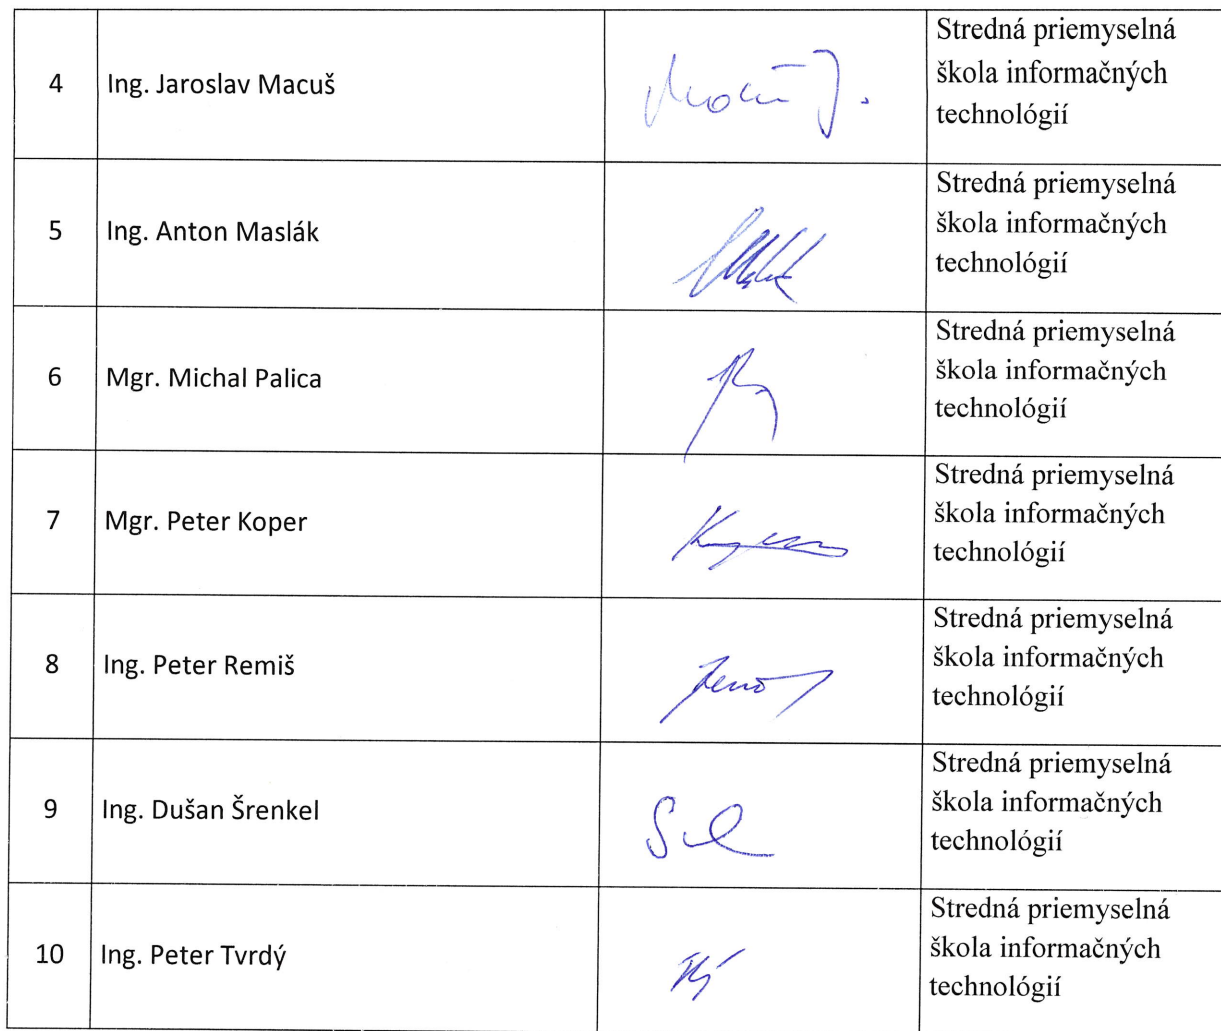 4
Ing. Jaroslav Macuš
Stredná priemyselná
škola informačných
technológií
5
Ing. Anton Maslák
Stredná priemyselná
škola informačných
technológií
6
Mgr. Michal Palica
Stredná priemyselná
škola informačných
technológií
7
Mgr. Peter Koper
Stredná priemyselná
škola informačných
technológií
8
Ing. Peter Remiš
Stredná priemyselná
škola informačných
technológií
9
Ing. Dušan Šrenkel
Stredná priemyselná
škola informačných
technológií
10
Ing. Peter Tvrdý
Stredná priemyselná
škola informačných
technológií